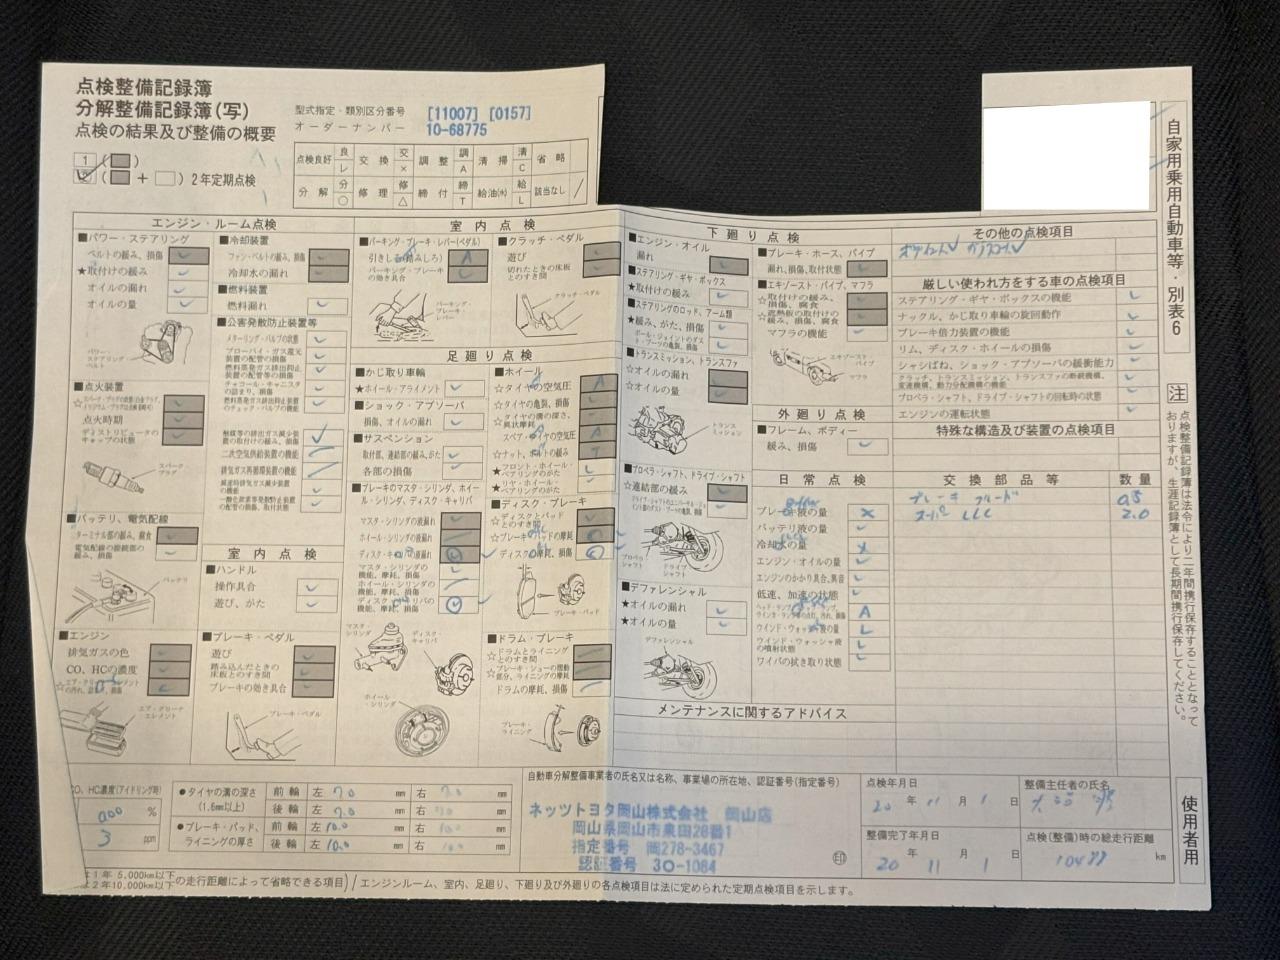 点検整備記録簿
分解整備記録簿(写)
点検の結果及び整備の概要
型式指定・類別区分番号 [11007] [0157]
オーダーナンバー 10-68775
1
2 ( + ) 2年定期点検
点検良好 良 レ 交換 交 × 調整 調 A 清掃 清 C 省略
分解 分 ○ 修理 修 △ 締付 締 T 給油(水) 給 L 該当なし /
自家用乗用自動車等・別表6
エンジン・ルーム点検
■パワー・ステアリング
ベルトの緩み、損傷
★取付けの緩み
オイルの漏れ
オイルの量
パワー・ステアリング ベルト
■点火装置
点火時期
ディストリビュータのキャップの状態
スパーク・プラグ
■バッテリ、電気配線
ターミナル部の緩み、腐食
電気配線の接続部の緩み、損傷
バッテリ
■エンジン
排気ガスの色
CO、HCの濃度
エア・クリーナ・エレメント
■冷却装置
ファン・ベルトの緩み、損傷
冷却水の漏れ
■燃料装置
燃料漏れ
■公害発散防止装置等
メターリング・バルブの状態
ブローバイ・ガス還元装置の配管の損傷
燃料蒸発ガス排出抑止装置の配管等の損傷
チャコール・キャニスタの詰まり、損傷
燃料蒸発ガス排出抑止装置のチェック・バルブの機能
触媒等の排出ガス減少装置の取付けの緩み、損傷
二次空気供給装置の機能
排気ガス再循環装置の機能
減速時排気ガス減少装置の機能
一酸化炭素等発散防止装置の配管の損傷、取付状態
室内点検
■ハンドル
操作具合
遊び、がた
■ブレーキ・ペダル
遊び
踏み込んだときの床板とのすき間
ブレーキの効き具合
ブレーキ・ペダル
室内点検
■パーキング・ブレーキ・レバー(ペダル)
引きしろ(踏みしろ) A
パーキング・ブレーキの効き具合
パーキング・ブレーキ・レバー
■クラッチ・ペダル
遊び
切れたときの床板とのすき間
クラッチ・ペダル
足廻り点検
■かじ取り車輪
★ホイール・アライメント
■ショック・アブソーバ
損傷、オイルの漏れ
■サスペンション
取付部、連結部の緩み、がた
各部の損傷
■ブレーキのマスタ・シリンダ、ホイール・シリンダ、ディスク・キャリパ
マスタ・シリンダの液漏れ
ホイール・シリンダの液漏れ
マスタ・シリンダの機能、摩耗、損傷
ホイール・シリンダの機能、摩耗、損傷
ディスク・キャリパの機能、摩耗、損傷
マスタ・シリンダ
ディスク・キャリパ
ホイール・シリンダ
■ホイール
☆タイヤの空気圧 A
☆タイヤの亀裂、損傷
☆タイヤの溝の深さ、異状摩耗
スペア・タイヤの空気圧 A
☆ナット、ボルトの緩み T
★フロント・ホイール・ベアリングのがた
★リヤ・ホイール・ベアリングのがた
■ディスク・ブレーキ
☆ディスクとパッドとのすき間
☆ブレーキ・パッドの摩耗
ディスクの摩耗、損傷
ブレーキ・パッド
■ドラム・ブレーキ
☆ドラムとライニングとのすき間
☆ブレーキ・シューの摺動部分、ライニングの摩耗
ドラムの摩耗、損傷
ブレーキ・ライニング
下廻り点検
■エンジン・オイル
漏れ
■ステアリング・ギヤ・ボックス
★取付けの緩み
■ステアリングのロッド、アーム類
★緩み、がた、損傷
ボール・ジョイントのダスト・ブーツの亀裂、損傷
■トランスミッション、トランスファ
☆オイルの漏れ
☆オイルの量
トランスミッション
■プロペラ・シャフト、ドライブ・シャフト
☆連結部の緩み
プロペラ・シャフト
ドライブ・シャフト
■デファレンシャル
★オイルの漏れ
★オイルの量
デファレンシャル
■ブレーキ・ホース、パイプ
漏れ、損傷、取付状態
■エキゾースト・パイプ、マフラ
☆取付けの緩み、損傷、腐食
☆遮熱板の取付けの緩み、損傷、腐食
マフラの機能
エキゾースト・パイプ
マフラ
外廻り点検
■フレーム、ボディー
緩み、損傷
日常点検
ブレーキ液の量 ×
バッテリ液の量
冷却水の量 ×
エンジン・オイルの量
エンジンのかかり具合、異音
低速、加速の状態
A
ウインド・ウォッシャ液の量 L
ウインド・ウォッシャ液の噴射状態
ワイパの拭き取り状態
その他の点検項目
厳しい使われ方をする車の点検項目
ステアリング・ギヤ・ボックスの機能
ナックル、かじ取り車輪の旋回動作
ブレーキ倍力装置の機能
リム、ディスク・ホイールの損傷
シャシばね、ショック・アブソーバの緩衝能力
クラッチ、トランスミッション、トランスファの断続機構、変速機構、動力分配機構の機能
プロペラ・シャフト、ドライブ・シャフトの回転時の状態
エンジンの運転状態
特殊な構造及び装置の点検項目
交換部品等 数量
ブレーキ フルード 0.5
スーパー LLC 2.0
メンテナンスに関するアドバイス
注 点検整備記録簿は法令により二年間携行保存することとなっておりますが、生涯記録簿として長期間携行保存してください。
使用者用
CO、HC濃度(アイドリング時)
0.00 %
3 ppm
●タイヤの溝の深さ (1.6mm以上)
前輪 左 7.0 mm 右 7.0 mm
後輪 左 7.0 mm 右 mm
●ブレーキ・パッド、ライニングの厚さ
前輪 左 10.0 mm 右 10.0 mm
後輪 左 10.0 mm 右 10.0 mm
自動車分解整備事業者の氏名又は名称、事業場の所在地、認証番号(指定番号)
ネッツトヨタ岡山株式会社 岡山店
岡山県岡山市東田28番1
指定番号 岡278-3467
認証番号 30-1084
印
点検年月日
20年 11月 1日
整備主任者の氏名
整備完了年月日
20 11 1
点検(整備)時の総走行距離
10477 km
は1年 5,000km以下
は2年10,000km以下 の走行距離によって省略できる項目)/エンジンルーム、室内、足廻り、下廻り及び外廻りの各点検項目は法に定められた定期点検項目を示します。